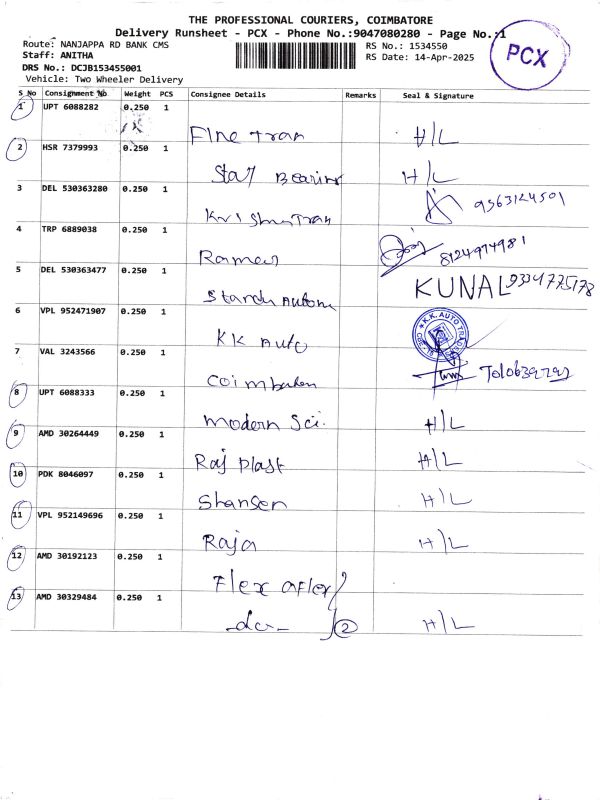 THE PROFESSIONAL COURIERS, COIMBATORE
Delivery Runsheet - PCX - Phone No.:9047080280 - Page No.:1
Route: NANJAPPA RD BANK CMS RS No.: 1534550
Staff: ANITHA RS Date: 14-Apr-2025
DRS No.: DCJB153455001
Vehicle: Two Wheeler Delivery
PCX
S No Consignment No Weight PCS Consignee Details Remarks Seal & Signature
1 UPT 6088282 0.250 1 Fine Tran H/L
2 HSR 7379993 0.250 1 Star Bearing H/L
3 DEL 530363280 0.250 1 Krishna Tran 9363124501
4 TRP 6889038 0.250 1 Ramesh 8124974981
5 DEL 530363477 0.250 1 Autom KUNAL 9334775178
6 VPL 952471907 0.250 1 KK Auto K.K. AUTO
7 VAL 3243566 0.250 1
8 UPT 6088333 0.250 1 Modern Sci. H/L
9 AMD 30264449 0.250 1 Raj Plast H/L
10 PDK 8046097 0.250 1 Shansen H/L
11 VPL 952149696 0.250 1 Raja H/L
12 AMD 30192123 0.250 1 Flex aflex
13 AMD 30329484 0.250 1 -do- 2 H/L